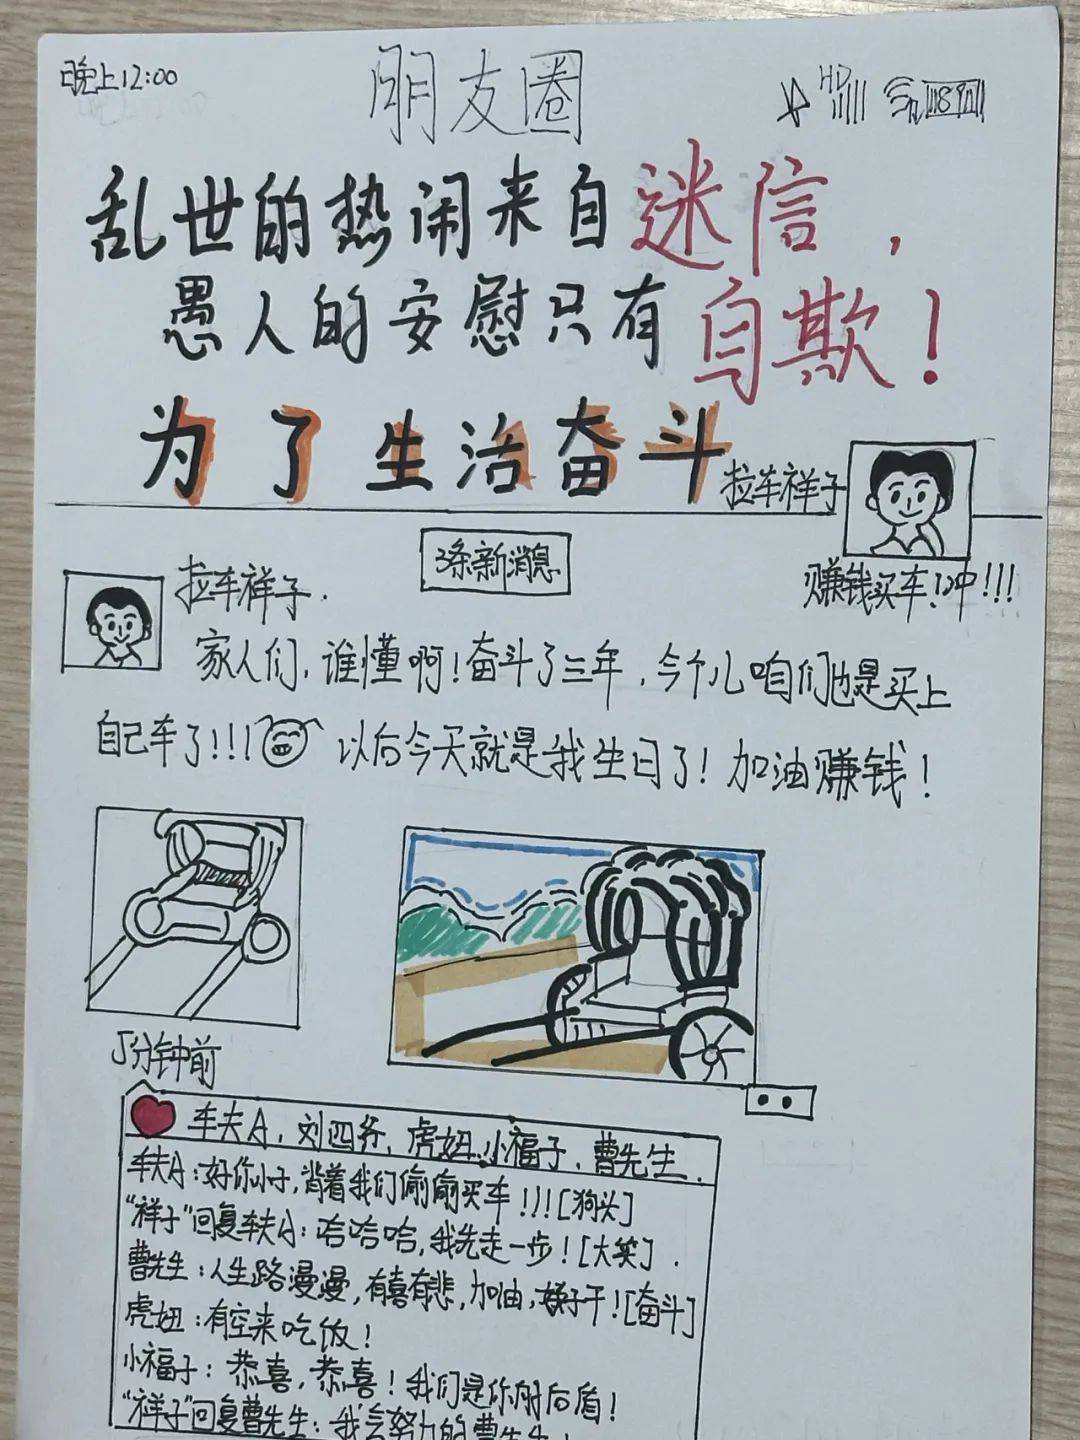 晚上12:00
朋友圈
HD
乱世的热闹来自迷信，
愚人的安慰只有自欺！
为了生活奋斗
拉车祥子
赚钱买车！冲！！！
3条新消息
拉车祥子.
家人们，谁懂啊！奋斗了三年，今个儿咱们也是买上
自己车了！！！以后今天就是我生日了！加油赚钱！
5分钟前
车夫A，刘四爷，虎妞，小福子，曹先生.
车夫A：好你小子，背着我们偷偷买车！！！[狗头]
“祥子”回复车夫A：哈哈哈，我先走一步！[大笑].
曹先生：人生路漫漫，有喜有悲，加油，好好干！[奋斗]
虎妞：有空来吃饭！
小福子：恭喜，恭喜！我们是你的后盾！
“祥子”回复曹先生：我会努力的曹先生！